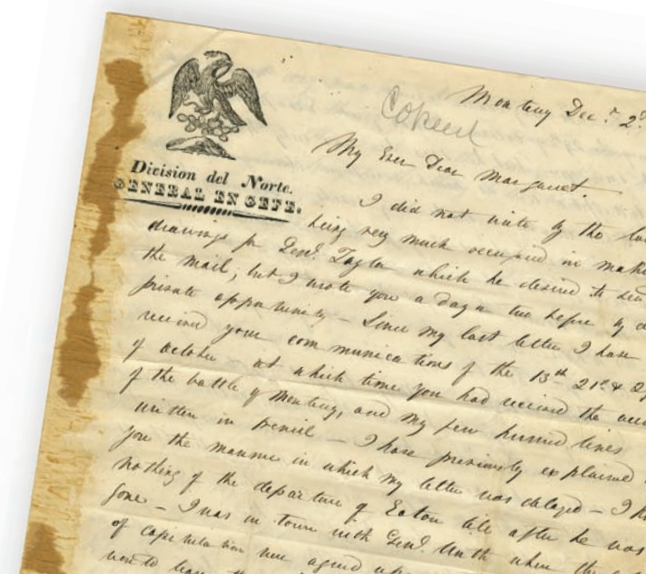 Monterey Dec.r 2
Copied
My Ever Dear Margaret.
Division del Norte.
GENERAL EN GEFE.
I did not write by the
being very much occupied in
drawings for Genl. Taylor which he desired to
the mail; but I wrote you a day or two before by
private opportunity — Since my last letter I have
received your communications of the 13th 21st &
of october — at which time you had received the
of the battle of Monterey, and my few hurried lines
written in pencil — I have previously explained
you the manner in which my letter was delayed — I
nothing of the departure of Eaton till after he was
gone — I was in town with Genl. Worth when the
of capitulation were agreed